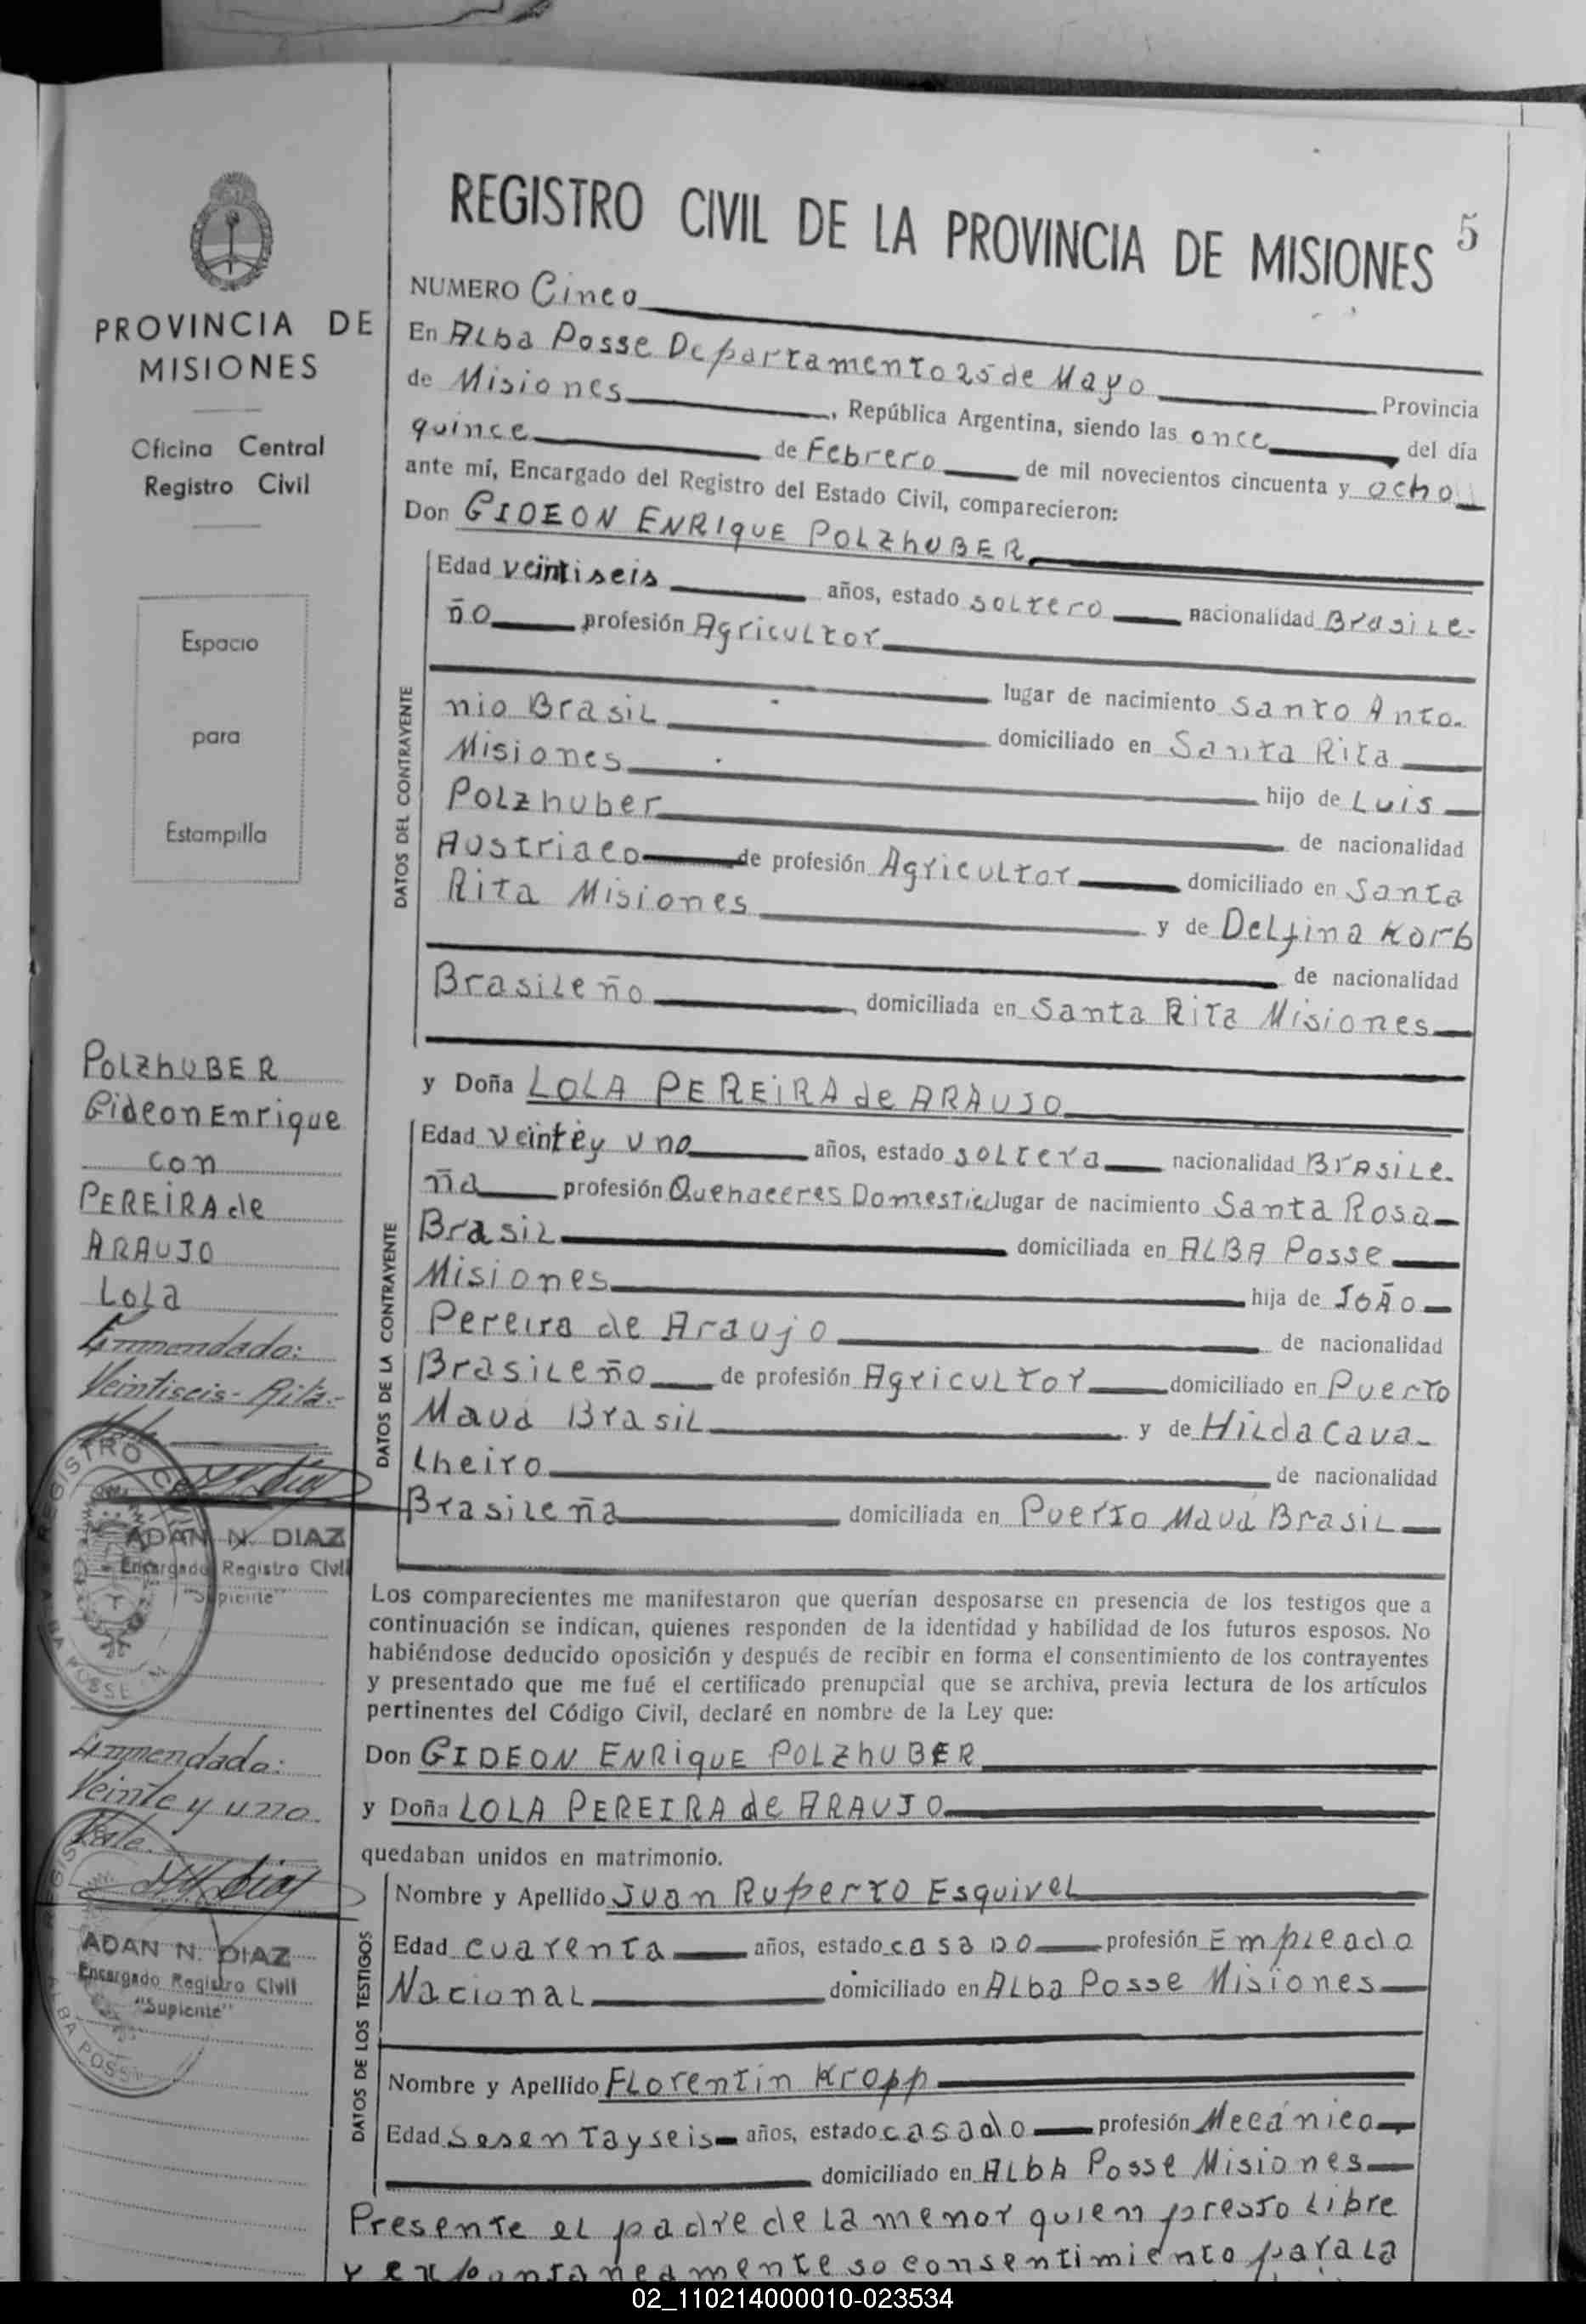 REGISTRO CIVIL DE LA PROVINCIA DE MISIONES 5
PROVINCIA DE
MISIONES
Oficina Central
Registro Civil
Espacio
para
Estampilla
POLZhUBER
Gideon Enrique
con
PEREIRA de
ARAUJO
Lola
Enmendado:
Veintiseis - Rita.-
Vale
REGISTRO CIVIL
ALBA POSSE
ADAN N. DIAZ
Encargado Registro Civil
"Suplente"
Enmendado:
Veinte y uno.
Vale.
ADAN N. DIAZ
Encargado Registro Civil
"Suplente"
ALBA POSSE
NUMERO Cinco
En Alba Posse Departamento 25 de Mayo Provincia
de Misiones, República Argentina, siendo las once del día
quince de Febrero de mil novecientos cincuenta y ocho
ante mí, Encargado del Registro del Estado Civil, comparecieron:
Don GIDEON ENRIqUE POLZhUBER
DATOS DEL CONTRAYENTE
Edad veintiseis años, estado soltero nacionalidad Brasile-
ño profesión Agricultor
lugar de nacimiento Santo Anto-
nio Brasil domiciliado en Santa Rita
Misiones hijo de Luis
Polzhuber de nacionalidad
Austriaco de profesión Agricultor domiciliado en Santa
Rita Misiones y de Delfina Korb
de nacionalidad
Brasileño, domiciliada en Santa Rita Misiones
y Doña LOLA PEREIRA de ARAUJO
DATOS DE LA CONTRAYENTE
Edad Veinte y uno años, estado soltera nacionalidad Brasile-
ña profesión Quehaceres Domestic lugar de nacimiento Santa Rosa
Brasil domiciliada en ALBA Posse
Misiones hija de JOÃO
Pereira de Araujo de nacionalidad
Brasileño de profesión Agricultor domiciliado en Puerto
Mauá Brasil y de Hilda Cava-
lheiro de nacionalidad
Brasileña domiciliada en Puerto Mauá Brasil
Los comparecientes me manifestaron que querían desposarse en presencia de los testigos que a
continuación se indican, quienes responden de la identidad y habilidad de los futuros esposos. No
habiéndose deducido oposición y después de recibir en forma el consentimiento de los contrayentes
y presentado que me fué el certificado prenupcial que se archiva, previa lectura de los artículos
pertinentes del Código Civil, declaré en nombre de la Ley que:
Don GIDEON ENRIqUE POLZhUBER
y Doña LOLA PEREIRA de ARAUJO
quedaban unidos en matrimonio.
DATOS DE LOS TESTIGOS
Nombre y Apellido Juan Ruperto Esquivel
Edad cuarenta años, estado casado profesión Empleado
Nacional domiciliado en Alba Posse Misiones
Nombre y Apellido Florentin Kropp
Edad sesentayseis años, estado casado profesión Mecánico
domiciliado en ALbA Posse Misiones
Presente el padre de la menor quien presto libre
y expontaneamente so consentimiento para la
02_110214000010-023534